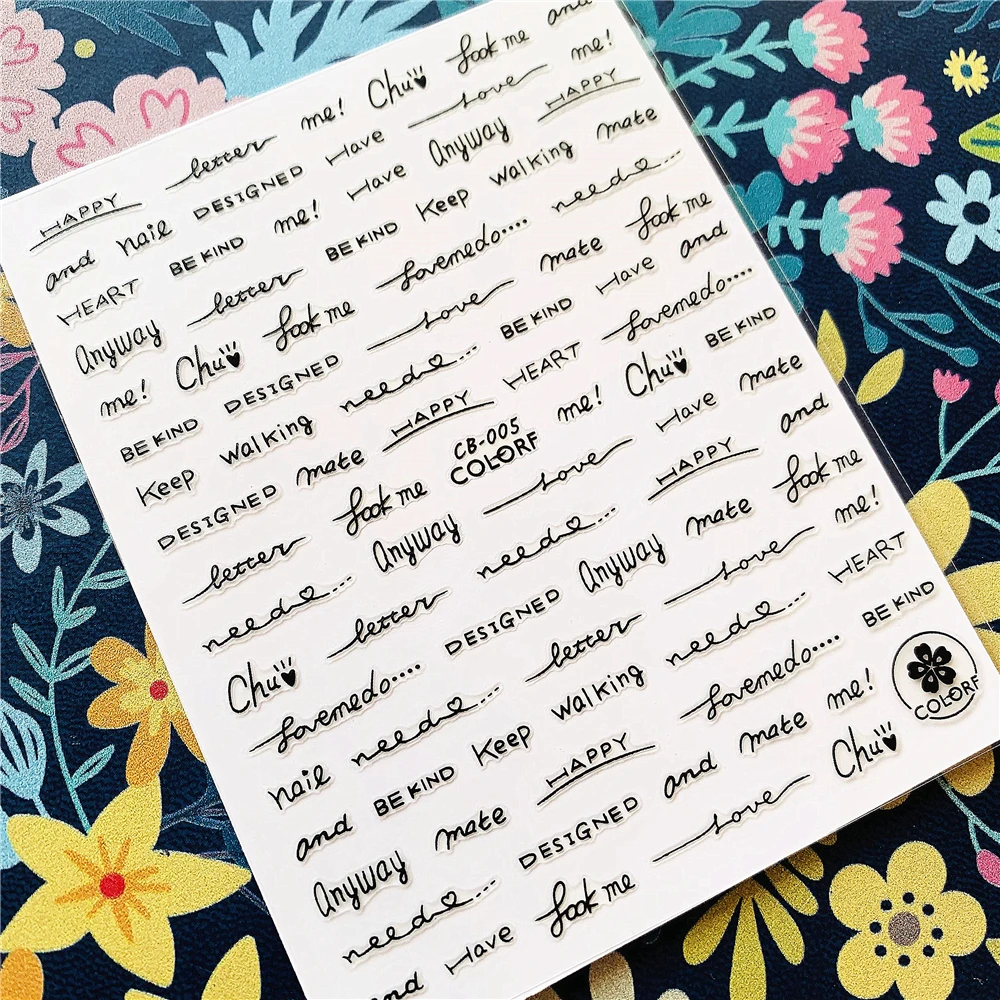 HAPPY better me! Chu look me and
and nail DESIGNED Have Love me!
HEART BE KIND me! Have Anyway HAPPY
Anyway better BE KIND Keep walking mate
me! Chu look me lovemedo.... need...
BE KIND DESIGNED Love mate look me
Keep walking need... BE KIND Have and
DESIGNED mate HAPPY HEART lovemedo....
better look me CB-005 me! Chu BE KIND
COLORF
need... Anyway Love Have mate
Chu better need... HAPPY and
lovemedo.... DESIGNED Anyway mate look me
nail need... better Love me!
and BE KIND Keep walking need... HEART
Anyway mate HAPPY lovemedo.... BE KIND
need... DESIGNED and mate me! COLORF
and Have look me Love Chu